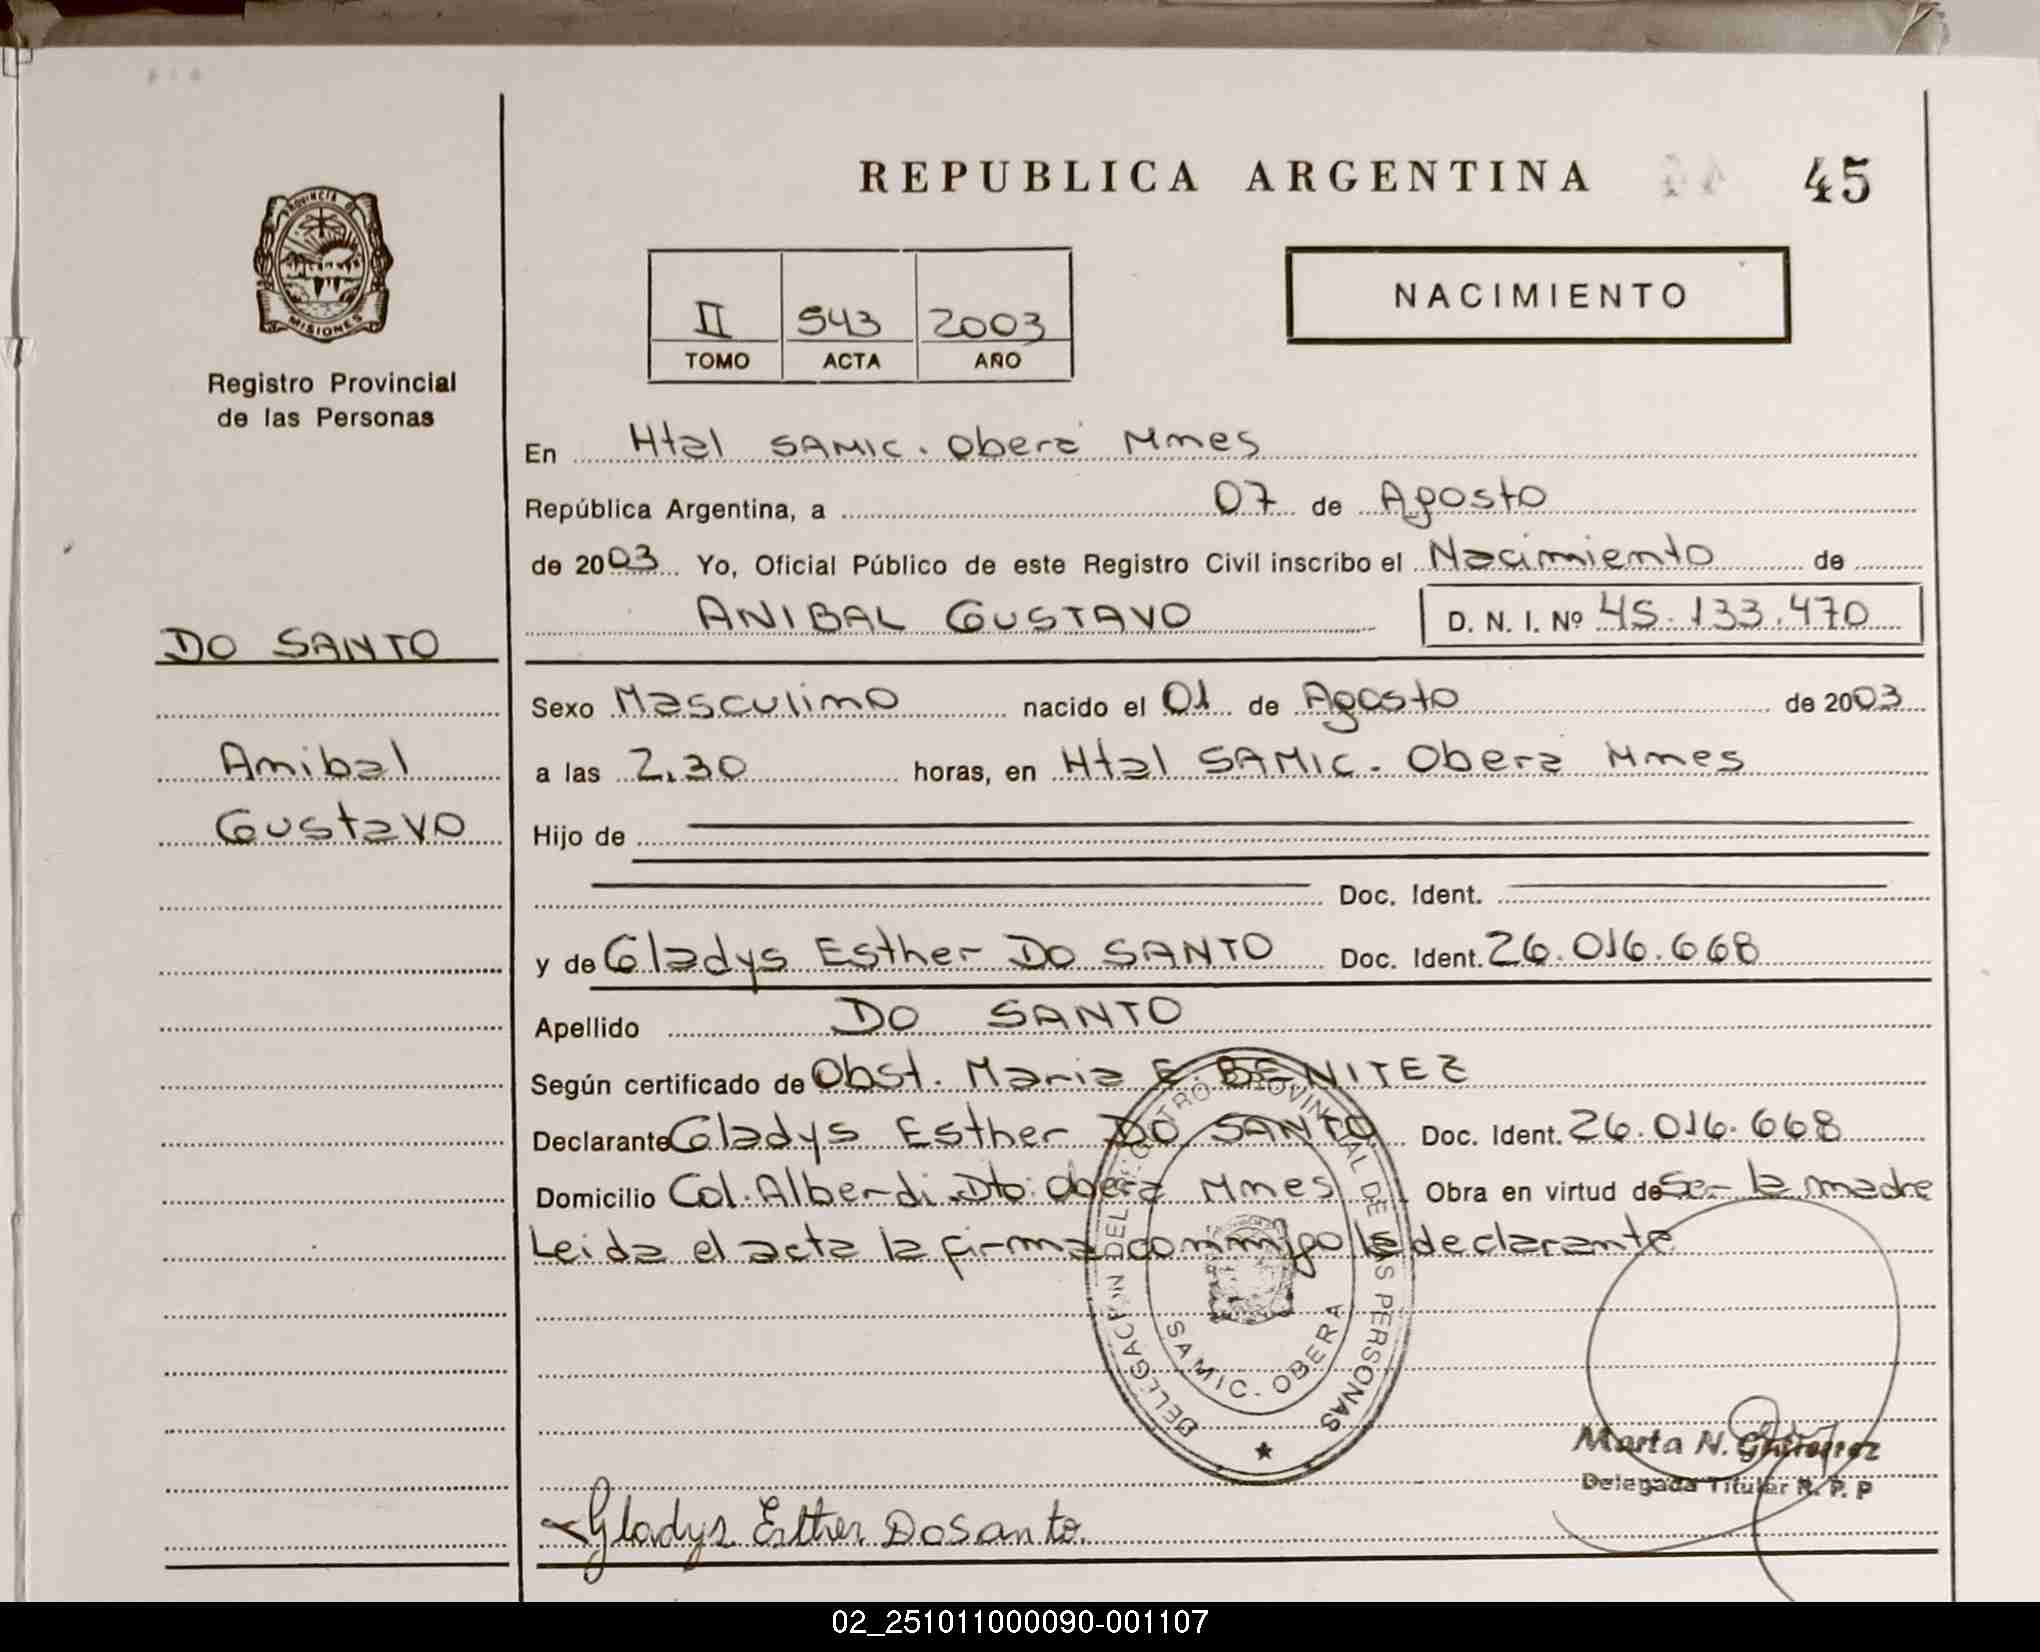 REPUBLICA ARGENTINA 45
PROVINCIA DE
MISIONES
Registro Provincial
de las Personas
II 543 2003
TOMO ACTA AÑO
NACIMIENTO
En Htal SAMIC. Oberá Mnes
República Argentina, a 07 de Agosto
de 2003 Yo, Oficial Público de este Registro Civil inscribo el Nacimiento de
ANIBAL GUSTAVO D. N. I. Nº 45.133.470
DO SANTO
Anibal
Gustavo
Sexo Masculino nacido el 01 de Agosto de 2003
a las 2.30 horas, en Htal SAMIC. Obera Mnes
Hijo de
Doc. Ident.
y de Gladys Esther DO SANTO Doc. Ident. 26.016.668
Apellido DO SANTO
Según certificado de Obst. Maria E. BENITEZ
Declarante Gladys Esther DO SANTO Doc. Ident. 26.016.668
Domicilio Col. Alberdi Dto. Obera Mnes Obra en virtud de Ser la madre
Leida el acta la firma conmigo la declarante
DELEGACION DEL REGISTRO PROVINCIAL DE LAS PERSONAS
SAMIC. OBERA
Marta N. Gutierrez
Delegada Titular R. P. P
Gladys Esther DoSanto.
02_251011000090-001107